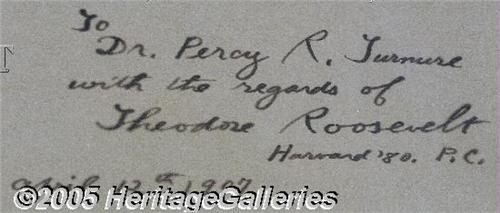 To
Dr. Percy R. Turnure
with the regards of
Theodore Roosevelt
Harvard '80. P.C.
April 12th 1907
©2005 HeritageGalleries